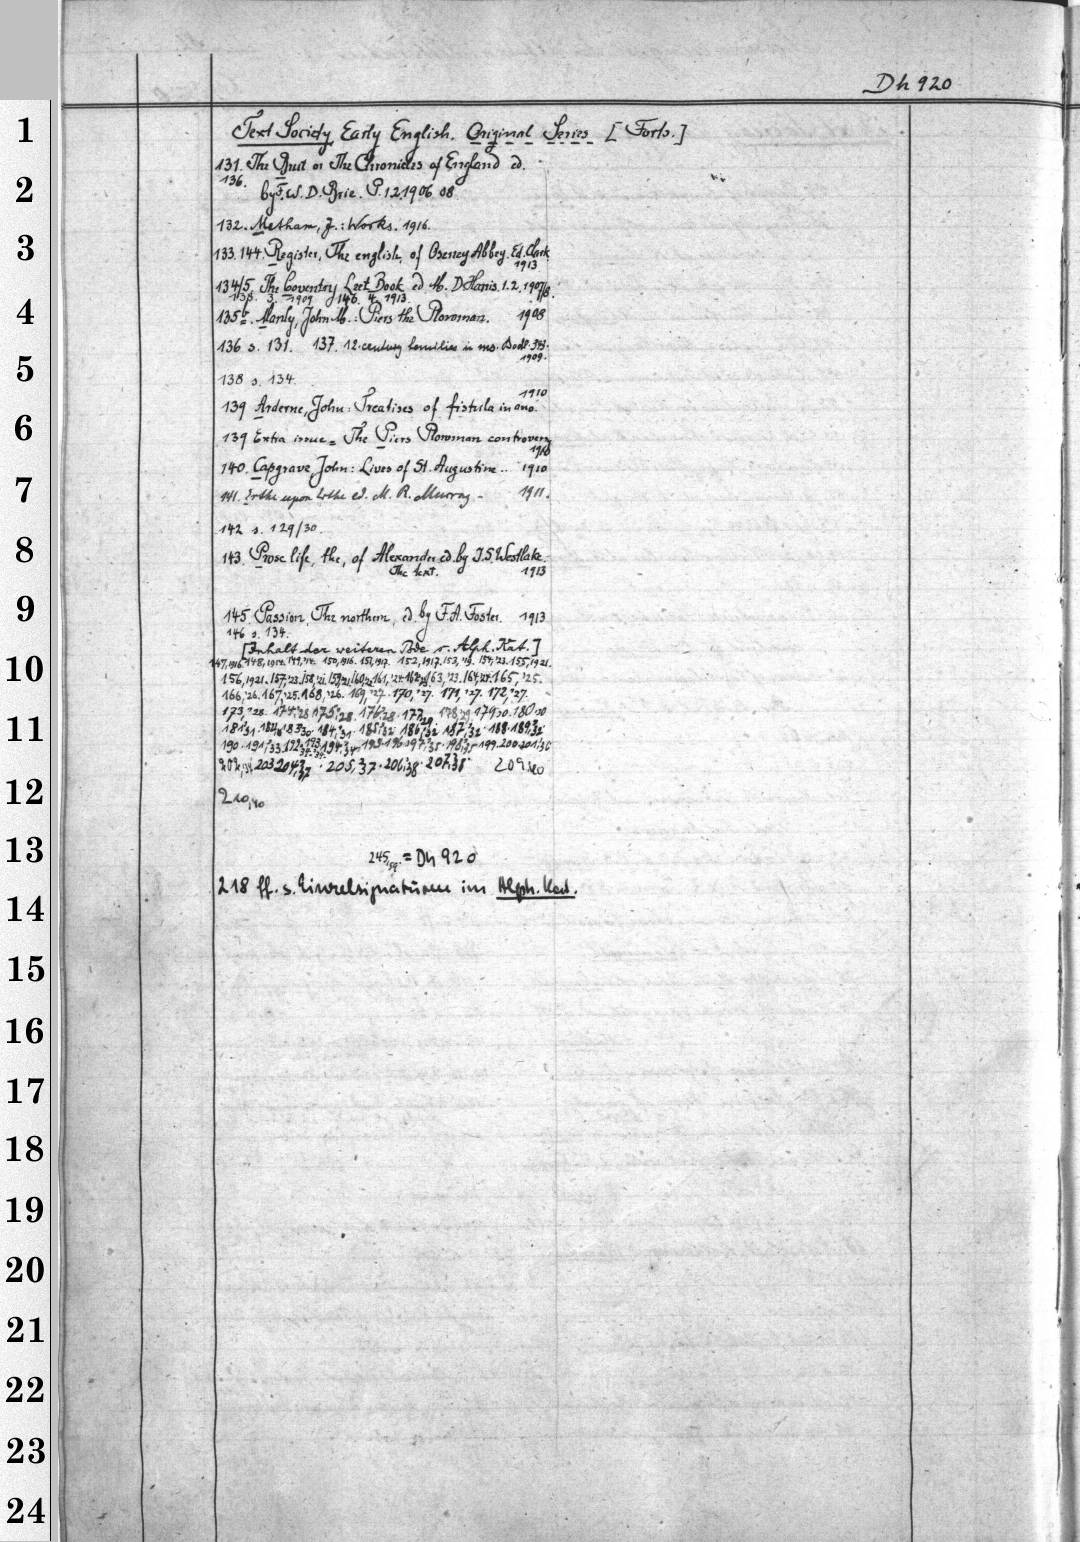 Dh 920
1
Text Society Early English. Original Series [Forts.]
131. The Brut or The Chronicles of England ed.
136.
2
by F. W. D. Brie. P. 1.2. 1906 08
132. Metham, J.: Works. 1916.
3
133. 144. Register, The english, of Oseney Abbey. Ed. Clark
1913
134/5. The Coventry Leet Book ed M. D Harris. 1. 2. 1907/8.
138. 3. 1909 146. 4. 1913.
4
135b. Manly, John M.: Piers the Plowman. 1908
136 s. 131. 137. 12. century homilies in ms. Bodl. 343.
1909.
5
138 s. 134.
1910
139 Arderne, John: Treatises of fistula in ano.
6
139 Extra issue = The Piers Plowman controversy
1910
140. Capgrave, John: Lives of St. Augustine .. 1910
7
141. Erthe upon Erthe ed. M. R. Murray - 1911.
142 s. 129/30.
8
143. Prose life, the, of Alexander ed. by J. S. Westlake.
The text. 1913
9
145. Passion, The northern, ed. by F. A. Foster. 1913
146 s. 134.
[Inhalt der weiteren Bde s. Alph. Kat.]
10
147, 1916 148, 1914. 149, '14. 150, 1916. 151, 1917. 152, 1917. 153, '19. 154, '23. 155, 1921.
156, 1921. 157, '23. 165, '25.
166, '26. 167, '25. 168, '26. 169, '27. 170, '27. 171, '27. 172, '27.
173, '28. 174, '28 175, 28. 176, 28. 177, 29 178, 29 179, 30. 180, 30
11
190. 191, 33
203 204, 37. 205, 37. 206, 38. 207, 38. 209, 40
12
210, 40
13
245 sq. = Dh 920
218 ff. s. Einzelsignaturen im Alph. Kat.
14
15
16
17
18
19
20
21
22
23
24